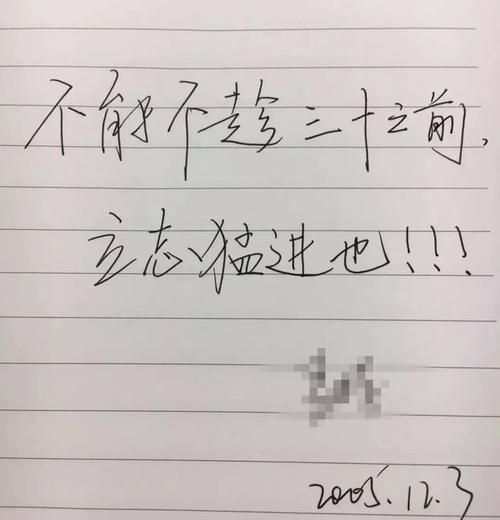 不能不趁三十之前,
立志猛进也!!!
2005.12.3